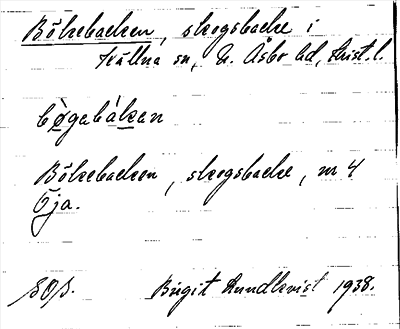 Bökebacken, skogsbacke i
Källna sn, N. Åsbo hd, Krist. l.
bø̀gabákan
Bökebacken, skogsbacke, nr 4
Öja.
Birgit Rundkvist 1938.